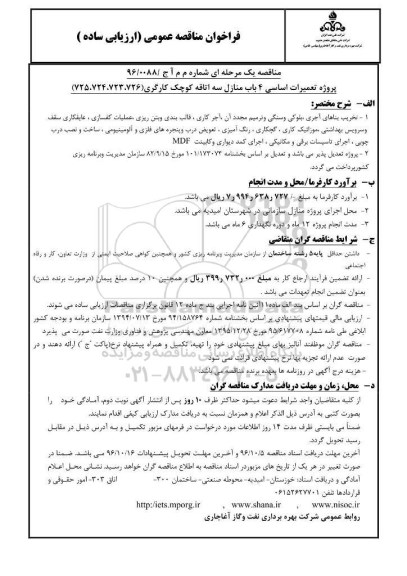 فراخوان مناقصه عمومی (ارزیابی ساده )
مناقصه یک مرحله ای شماره م م آ ج /۹۶/۰۰۸۸
پروژه تعمیرات اساسی ۴ باب منازل سه اتاقه کوچک کارگری(۷۲۵،۷۲۴،۷۲۳،۷۲۶)
الف- شرح مختصر:
۱ - تخریب بناهای آجری ،بلوکی وسنگی وترمیم مجدد آن ،آجر کاری ، قالب بندی وبتن ریزی ،عملیات کفسازی ، عایقکاری سقف
وسرویس بهداشتی ،موزائیک کاری ، گچکاری ، رنگ آمیزی ، تعویض درب وپنجره های فلزی و آلومینیومی ، ساخت و نصب درب
چوبی ، اجرای تاسیسات برقی و مکانیکی ، اجرای کمد دیواری وکابینت MDF
۲ - پروژه تعدیل پذیر می باشد و تعدیل بر اساس بخشنامه ۱۰۱/۱۷۳۰۷۳ مورخ ۸۲/۹/۱۵ سازمان مدیریت وبرنامه ریزی
کشورپرداخت می گردد.
ب- برآورد کارفرما/محل و مدت انجام
۱- برآورد کارفرما به مبلغ ۷٫۹۹۴٫۶۳۸٫۷۲۷/- ریال می باشد.
۲- محل اجرای پروژه منازل سازمانی در شهرستان امیدیه می باشد.
۳- مدت انجام پروژه ۱۲ ماه و دوره نگهداری ۶ ماه می باشد.
ج- شرایط مناقصه گران متقاضی
- داشتن حداقل پایه۵ رشته ساختمان از سازمان مدیریت وبرنامه ریزی کشور و همچنین گواهی صلاحیت ایمنی از وزارت تعاون، کار و رفاه
اجتماعی.
- ارائه تضمین فرآیند ارجاع کار به مبلغ ۳۹۹٫۷۳۲٫۰۰۰ ریال و همچنین ۱۰ درصد مبلغ پیمان (درصورت برنده شدن)
بعنوان تضمین انجام تعهدات می باشد .
- مناقصه گران بر اساس بند الف ماده۱۱ آئین نامه اجرایی بند ج ماده ۱۲ قانون برگزاری مناقصات ارزیابی ساده می شوند.
- ارزیابی مالی قیمتهای پیشنهادی بر اساس بخشنامه شماره ۹۴/۱۵۸۷۶۴ مورخ ۱۳۹۴/۰۷/۱۳ سازمان برنامه و بودجه کشور
ابلاغی طی نامه شماره ۹۵/۶۱۷۷۰۸ مورخ ۱۳۹۵/۱۲/۲۸ معاون مهندسی پژوهش و فناوری وزارت نفت صورت می پذیرد
- مناقصه گران موظفند آنالیز بهای مبلغ پیشنهادی خود را تهیه، تکمیل و همراه پیشنهاد نرخ(پاکت "ج ") ارائه دهند و در
صورت عدم ارائه تجزیه بها نرخ پیشنهادی قرائت نمی شود.
- هزینه درج آگهی در روزنامه ها بعهده برنده مناقصه می باشد.
د- محل، زمان و مهلت دریافت مدارک مناقصه گران
از کلیه متقاضیان واجد شرایط دعوت میشود حداکثر ظرف ۱۰ روز پس از انتشار آگهی نوبت دوم، آمادگی خود را
بصورت کتبی به آدرس ذیل الذکر اعلام و همزمان نسبت به دریافت مدارک ارزیابی کیفی اقدام نمایند.
ضمناً می بایستی ظرف مدت ۱۴ روز اطلاعات مورد درخواست در فرمهای مزبور تکمیل و بـه آدرس ذیـل در مقابـل
رسید تحویل گردد.
آخرین مهلت دریافت اسناد مناقصه ۹۶/۱۰/۵ و آخـرین مهلـت تحویـل پیشـنهادات ۹۶/۱۰/۱۶ مـی باشـد. ضـمنا در
صورت تغییر در هر یک از تاریخ های مزبوردر اسناد مناقصه به اطلاع مناقصه گران خواهد رسـید. نشـانی محـل اعـلام
آمادگی و دریافت اسناد: خوزستان- امیدیه- محوطه صنعتی- ساختمان ۳۰۰- اتاق ۳۰۳- امور حقـوقی و
قراردادها تلفن ۰۶۱۵۲۶۲۷۷۰۱
http://iets.mporg.ir , www.shana.ir , www.nisoc.ir
روابط عمومی شرکت بهره برداری نفت وگاز آغاجاری